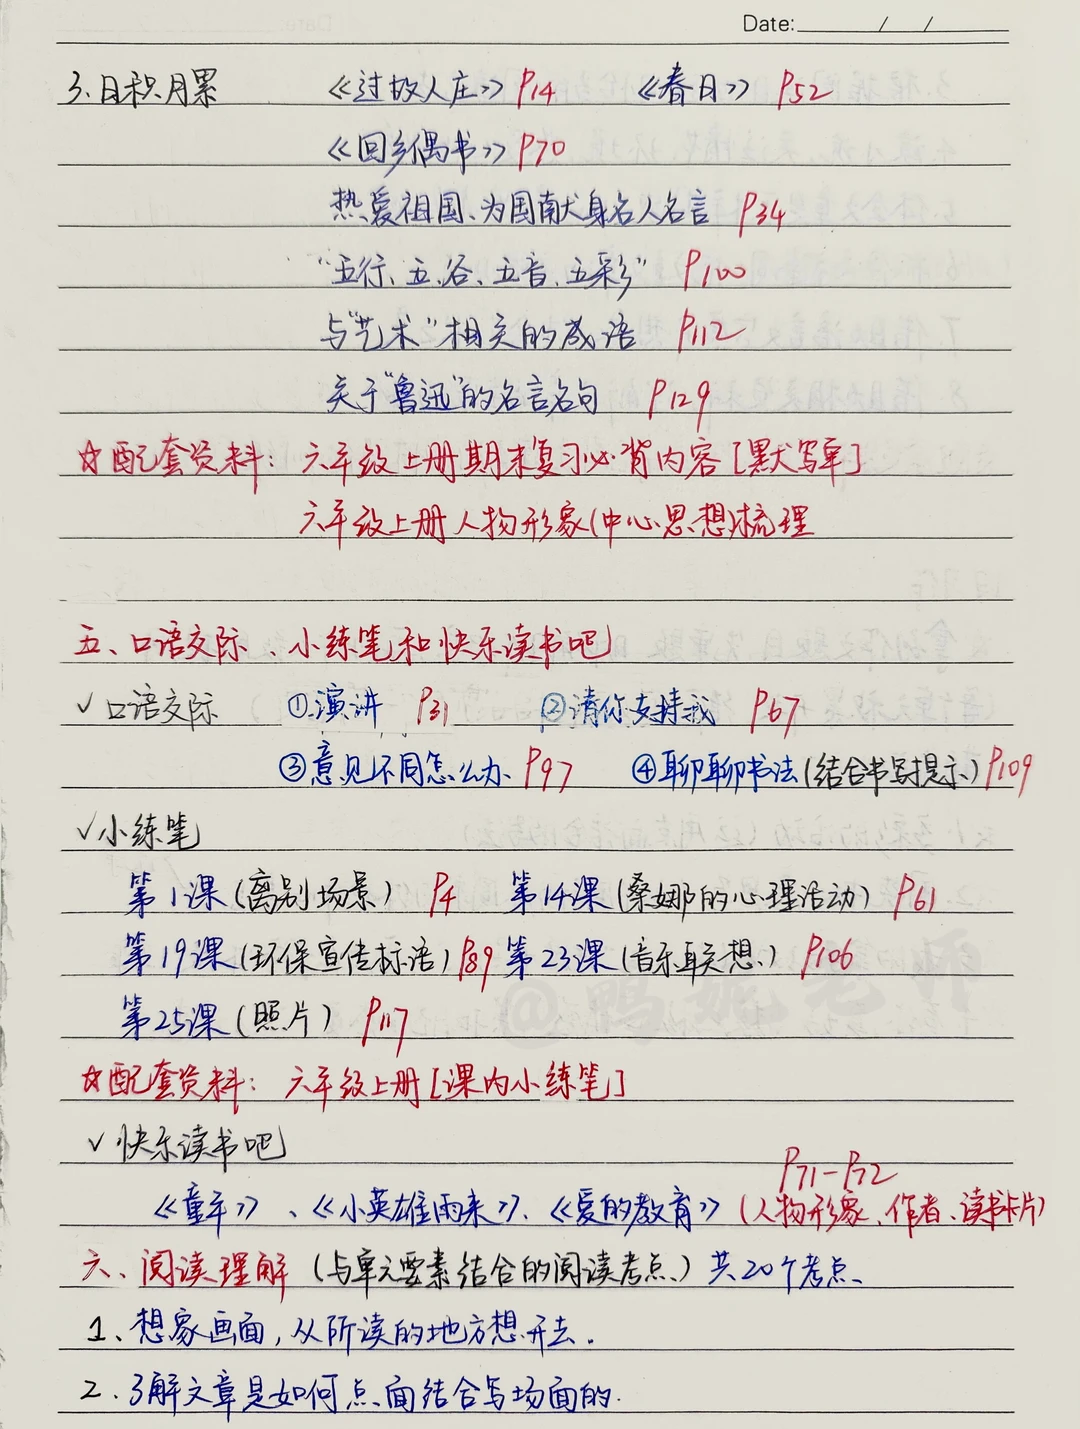 Date: / /
3.日积月累 《过故人庄》P14 《春日》P52
《回乡偶书》P70
热爱祖国、为国献身名人名言 P34
"五行、五谷、五音、五彩" P100
与"艺术"相关的成语 P112
关于"鲁迅"的名言名句 P129
☆配套资料：六年级上册期末复习必背内容[默写单]
六年级上册人物形象(中心思想)梳理
五、口语交际、小练笔和快乐读书吧
✓口语交际 ①演讲 P31 ②请你支持我 P67
③意见不同怎么办 P97 ④聊聊书法(结合书写提示)P109
✓小练笔
第1课(离别场景) P4 第14课(桑娜的心理活动) P61
第19课(环保宣传标语)P89 第23课(音乐联想) P106
第25课(照片) P117
@鸭妮老师
☆配套资料：六年级上册[课内小练笔]
✓快乐读书吧
P71-P72
《童年》、《小英雄雨来》、《爱的教育》(人物形象、作者、读书卡片)
六、阅读理解(与单元要素结合的阅读考点)共20个考点、
1、想象画面,从所读的地方想开去.
2.了解文章是如何点面结合写场面的.